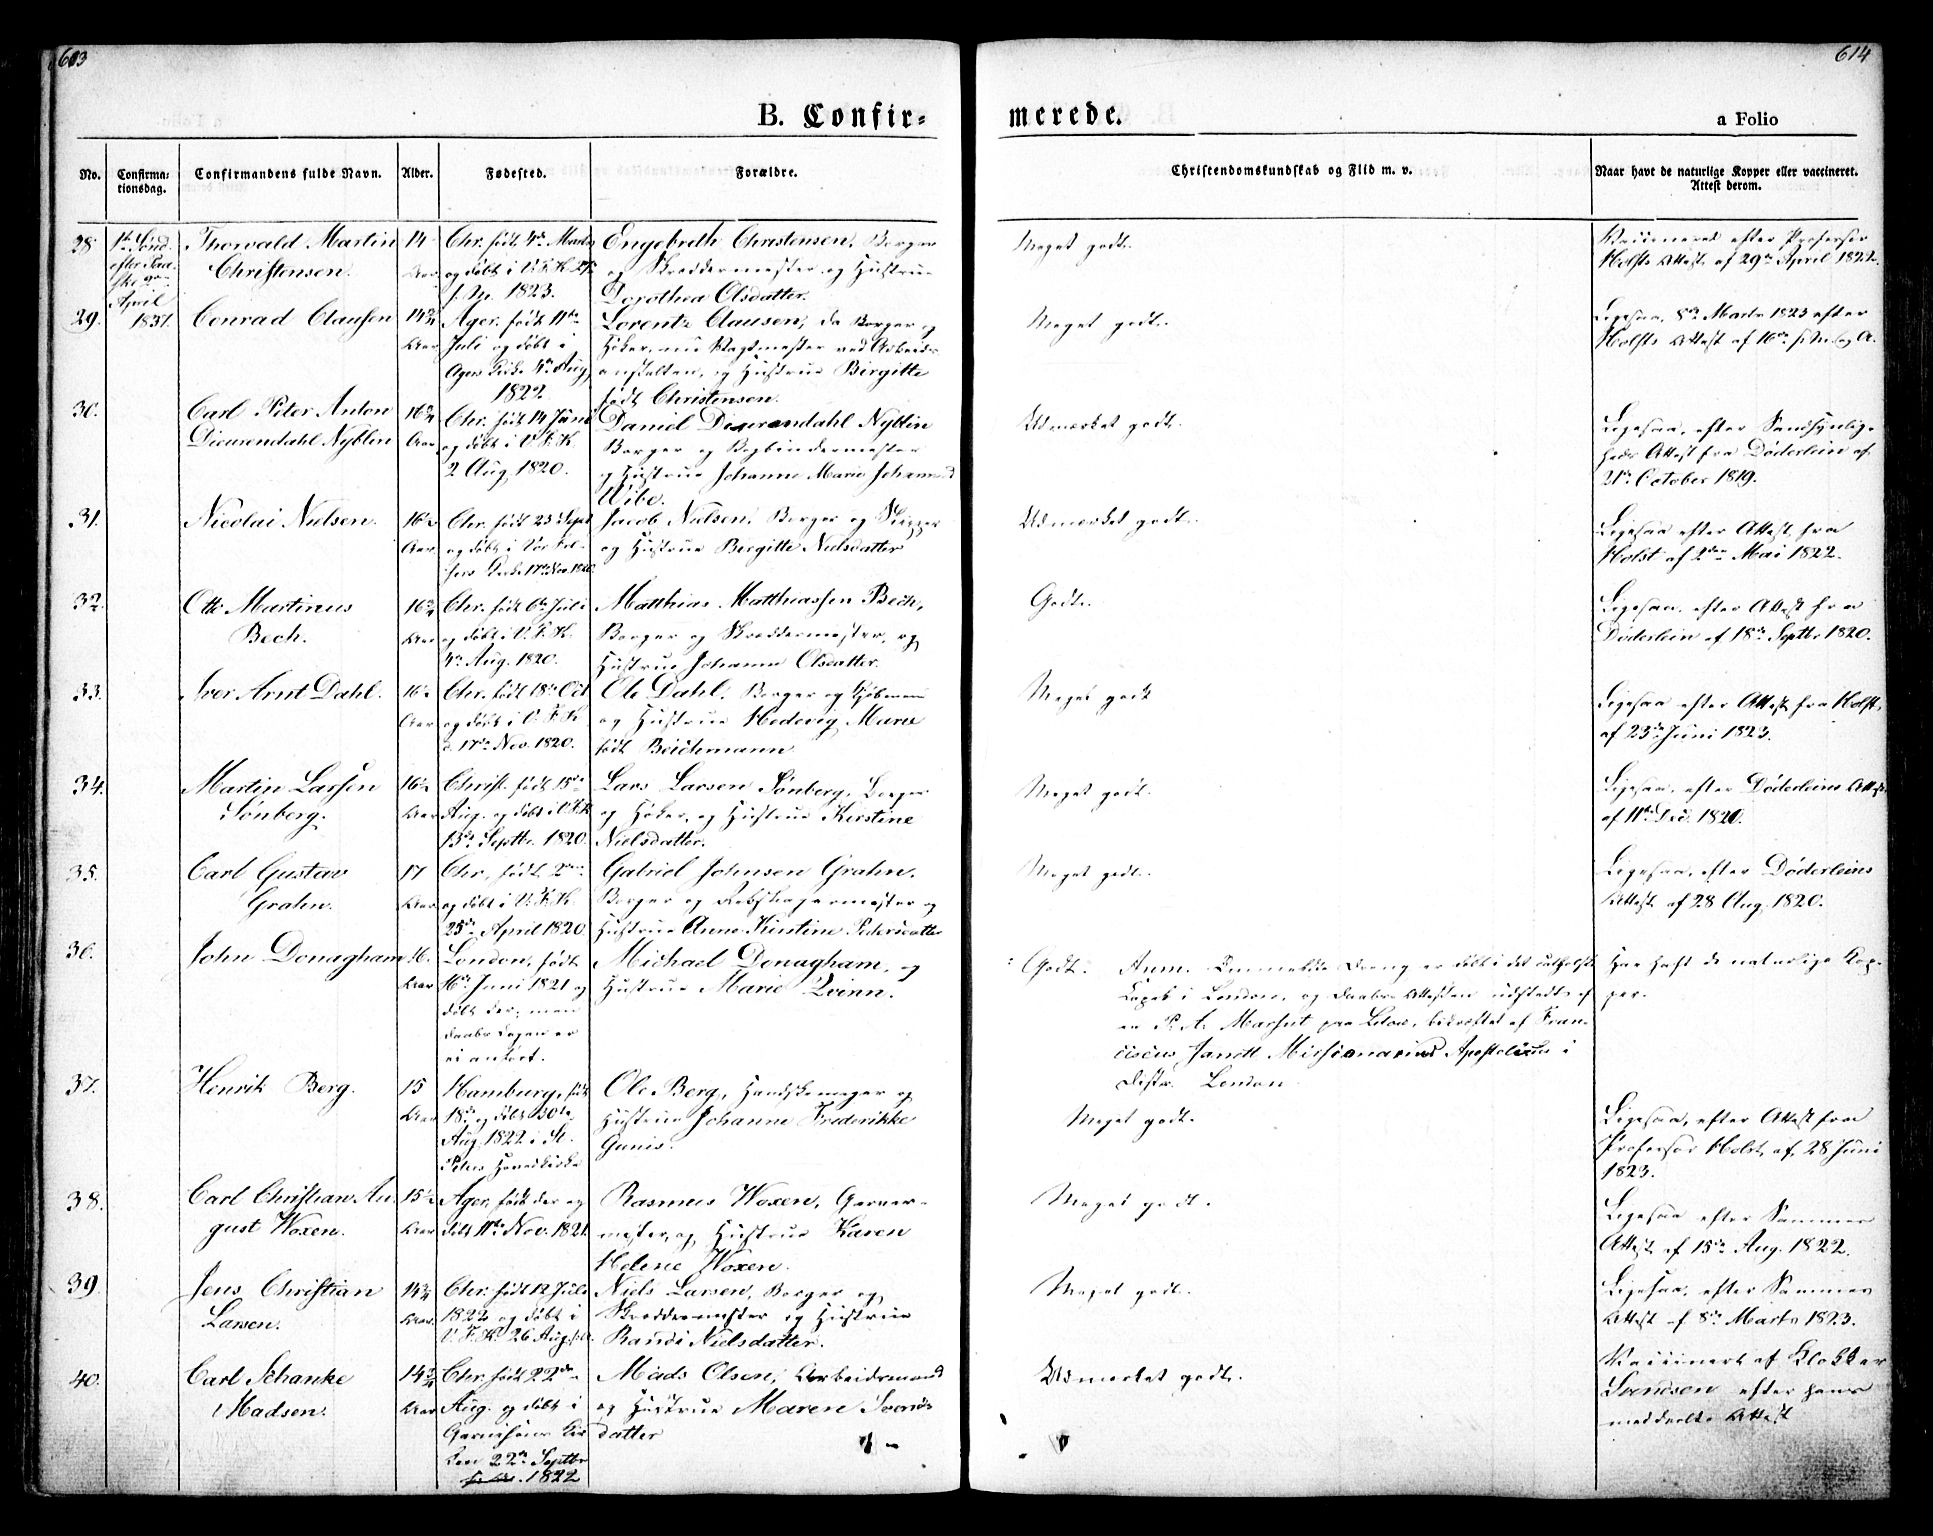 613
614
B. Confir=
merede.
a Folio
No.
Confirma=
tionsdag.
Confirmandens fulde Navn.
Alder.
Fødested.
Forældre.
Christendomskundskab og Flid m. v.
Naar havt de naturlige Kopper eller vaccineret.
Attest derom.
28.
1te Sønd.
efter Paa-
ske 9de
April
1837.
Thorvald Martin
Christensen.
14
Aar.
Chr. født 4de Marts
og døbt i V. F. K.
1823.
Engebreth Christensen, Borger
og Skreddermester og Hustrue
Dorothea Olsdatter.
Meget godt.
Vaccineret efter Professor
Holsts Attest af 29de April 1822.
29.
Conrad Clausen
14 3/4
Aar
Ager, født 11te
Juli og døbt i
Agers Kirke 4de Aug.
1822.
Lorentz Clausen, da Borger og
Høker, nu Vagtmester ved Arbeids-
anstalten, og Hustrue Birgitte
født Christensen.
Meget godt.
Ligesaa, 8de Marts 1823 efter
Holsts Attest af 16de s. M. og A.
30.
Carl Peter Anton
Dieurendahl Nyblin
16 3/4
Aar
Chr. født 14 Juni
og døbt i V. F. K.
2 Aug. 1820.
Daniel Dieurendahl Nyblin
Borger og Bogbindermester
og Hustrue Johanne Marie
Wibe.
Udmærket godt.
Ligesaa, efter Sandsynlig-
heds Attest fra Døderlein af
21de October 1819.
31.
Nicolai Nielsen.
16 1/2
Aar
Chr. født 23 Sept
og døbt i Vor Frel-
sers Kirke 17de Nov. 1820.
Jacob Nielsen, Borger og Skipper
og Hustrue Birgitte Nielsdatter
Udmærket godt.
Ligesaa efter Attest fra
Holst af 2den Mai 1822.
32.
Otto Martinus
Bech.
16 3/4
Aar
Chr. født 6te Juli
og døbt i V. F. K.
4de Aug. 1820.
Matthias Matthiassen Bech,
Borger og Skreddermester, og
Hustrue Johanne Olsdatter.
Godt.
Ligesaa, efter Attest fra
Døderlein af 18de Septbr 1820.
33.
Iver Arnt Dahl.
16 1/2
Aar
Chr. født 18de Oct
og døbt i V. F. K
d. 17de Nov. 1820.
Ole Dahl, Borger og Kjøbmand
og Hustrue Hedevig Marie
født Beichmann
Meget godt
Ligesaa efter Attest fra Holst,
af 23de Juni 1823.
34.
Martin Larsen
Sønberg.
16 1/2
Aar
Christ. født 15de
Aug. og døbt i V. F. K
15de Septbr. 1820.
Lars Larsen Sønberg, Borger
og Høker, og Hustrue Kirstine
Nielsdatter.
Meget godt.
Ligesaa, efter Døderleins Attest
af 11te Dec. 1820.
35.
Carl Gustav
Grahn.
17
Aar
Chr, født 2den
og døbt i V. F. K.
25de April 1820.
Gabriel Johnsen Grahn.
Borger og Rebslagermester og
Hustrue Anne Kirstine Pedersdatter
Meget godt.
Ligesaa, efter Døderleins
Attest af 28 Aug. 1820.
36.
John Donagham
16.
Aar
London, født
16de Juni 1821 og
døbt der, men
Daabsdagen er
ei anført.
Michael Donagham, og
Hustrue Marie Qvinn.
Godt.
Anm. Anmeldte Dreng er døbt i det catholske
Capel i London, og Daabs-Attesten udstedt af
en P. A. Marsut
bekræftet af Fran-
ciscus Janett Missionarius Apostolicus i
Distr. London.
Har haft de naturlige Kop-
per.
37.
Henrik Berg.
15
Aar
Hamburg, født
18de og døbt 30te
Aug. 1822 i St.
Petri Hovedkirke
Ole Berg, Handskemager og
Hustrue Johanne Frederikke
Gunis.
Meget godt.
Ligesaa, efter Attest fra
Professor Holst, af 28 Juni
1823.
38.
Carl Christian Au-
gust Woxen.
15 1/2
Aar
Ager, født der og
døbt 11te Nov. 1821.
Rasmus Woxen, Garver-
mester, og Hustrue Karen
Helene Woxen.
Meget godt.
Ligesaa efter Sammes
Attest af 15de Aug. 1822.
39.
Jens Christian
Larsen.
14 3/4
Aar.
Chr. født 12 Juli
1822 og døbt i
V. F. K. 26 Aug.
Niels Larsen, Borger og
Skreddermester og Hustrue
Randi Nielsdatter.
Meget godt.
Ligesaa, efter Sammes
Attest af 8de Marts 1823.
40.
Carl Schanke
Madsen.
14 3/4
Aar
Chr. født 22de
Aug. og døbt i
Garnisons Kir
ken 22de Septbr
1822
Mads Olsen, Arbeidsmand
og Hustrue Maren Svends-
datter
Udmærket godt.
Vaccineret af Klokker
Svendsen efter hans
meddeelte Attest